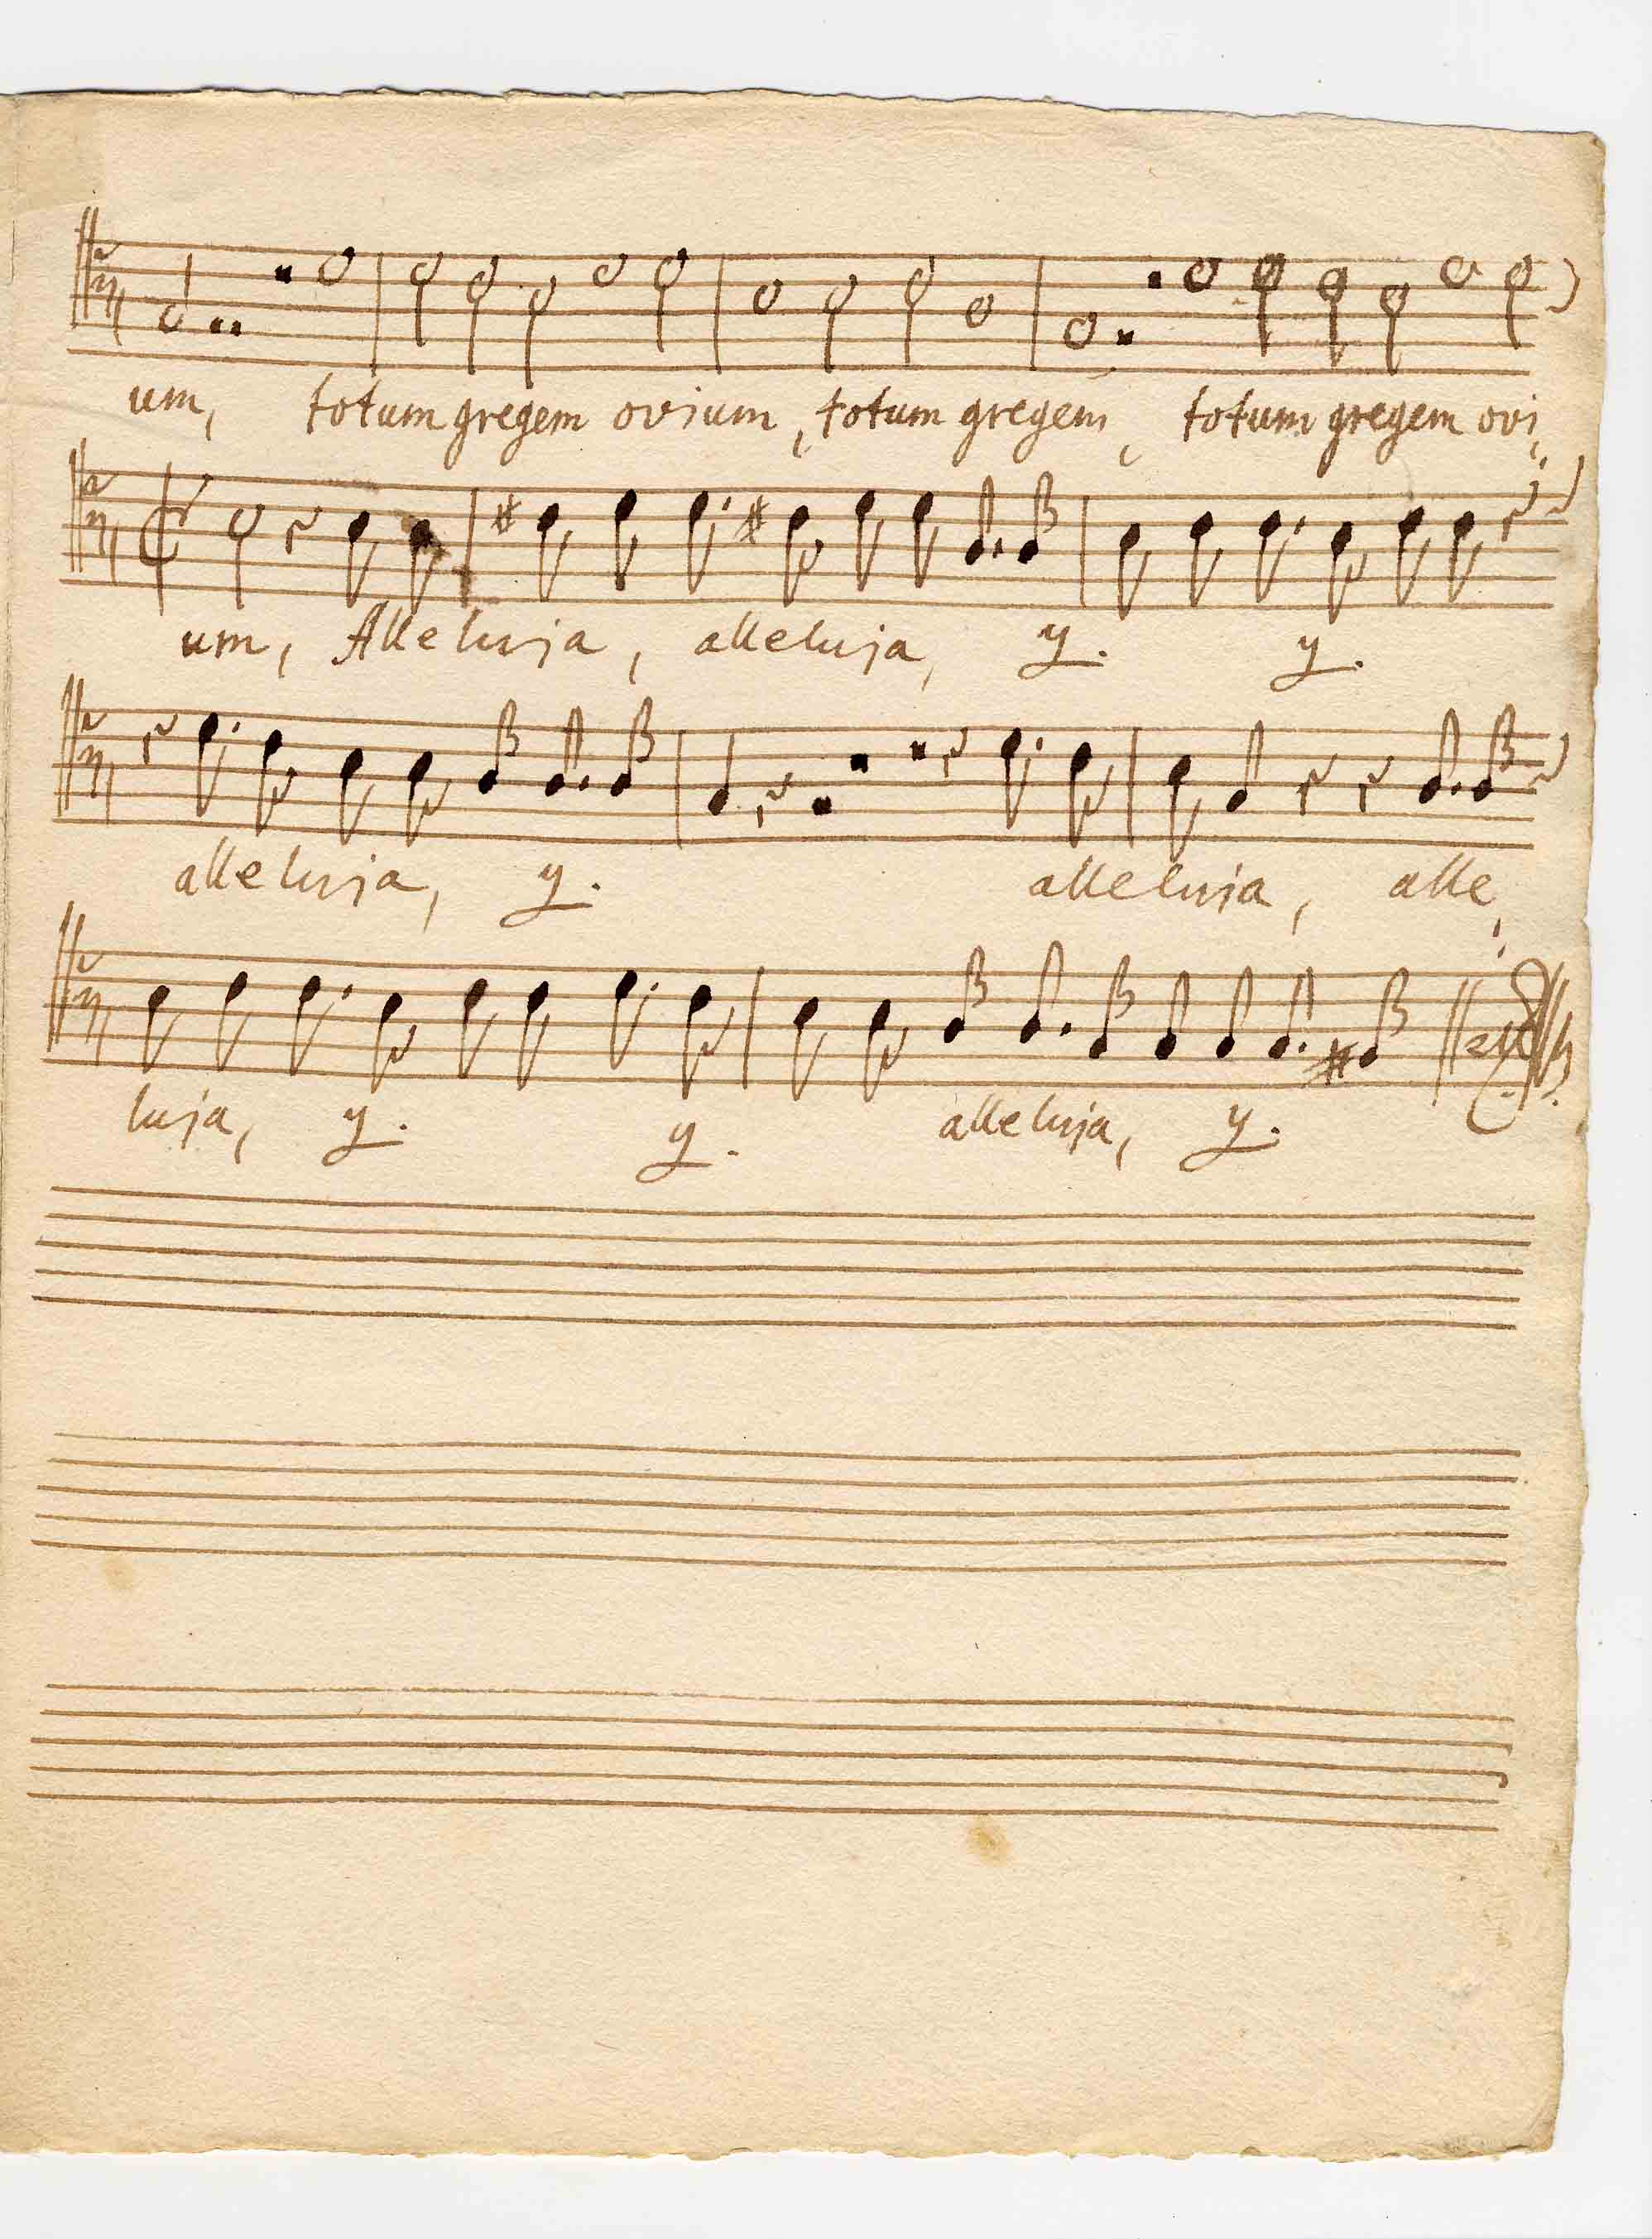 um, totum gregem ovium, totum gregem, totum gregem ovi,
um, Alleluja, alleluja, y. y.
alleluja, y. alleluja, alle,
luja, y. y. alleluja, y.